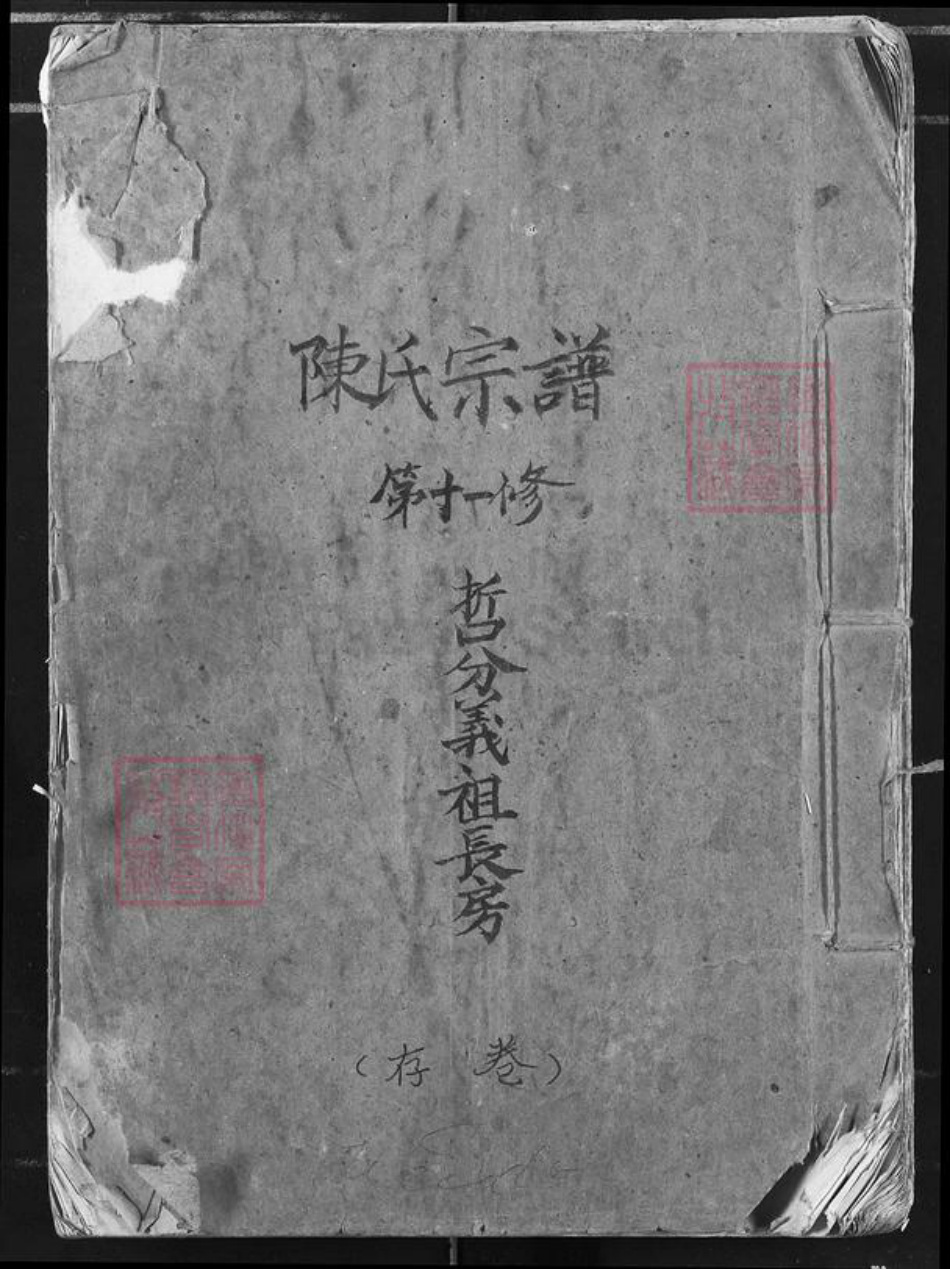 陳氏宗譜
第十一修
哲分義祖長房
（存 卷）